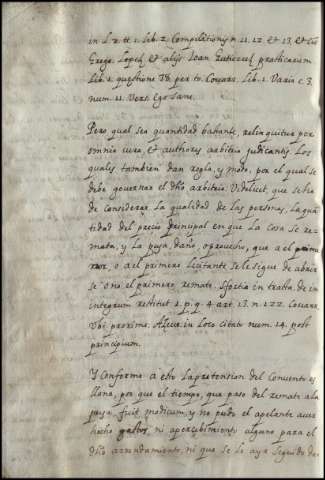 in L 2. tt 1. Lib. 2. Compilationis n. 11. 12. et 13. et
Greg. Lopez, et alijs Ioan Gutierrez practicarum
Lib. 2. questione 38. per to. Covars. Lib. 1. Varia c. 3.
num. 11. Vers. Ego sane.
Pero qual sea quantidad bastante, relinquitur per
omnia cura, et authores arbitrio judicantis Los
quales tambien dan regla, y modo, por el qual se
debe governar el dho arbitrio. Videlicet, que se ha
de considerar La qualidad de las personas, La quan
tidad del precio principal en que La cosa se re-
mata, y La puja, daño, o provecho, que a el
o a el primero Licitante se le sigue de abrir
se o no el primero, remate. Sfortia in tractta. de in
integrum restitut. 1. p. q. 4. art. 13. n. 122. Covarr.
Vbi proxime. Azeve. in Loco citato num. 14. post
principium.
Y Conforme a esto La pretension del Convento es
llana, por que el tiempo, que paso del remate a la
puja fuit modicum, y no pudo el apelante aver
hecho gastos, ni apercibimiento alguno para el
dho arrendamiento, ni que se le aya seguido de